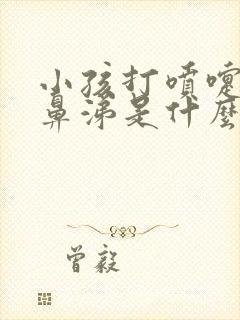 小孩打喷嚏
鼻涕是什麼
曾毅